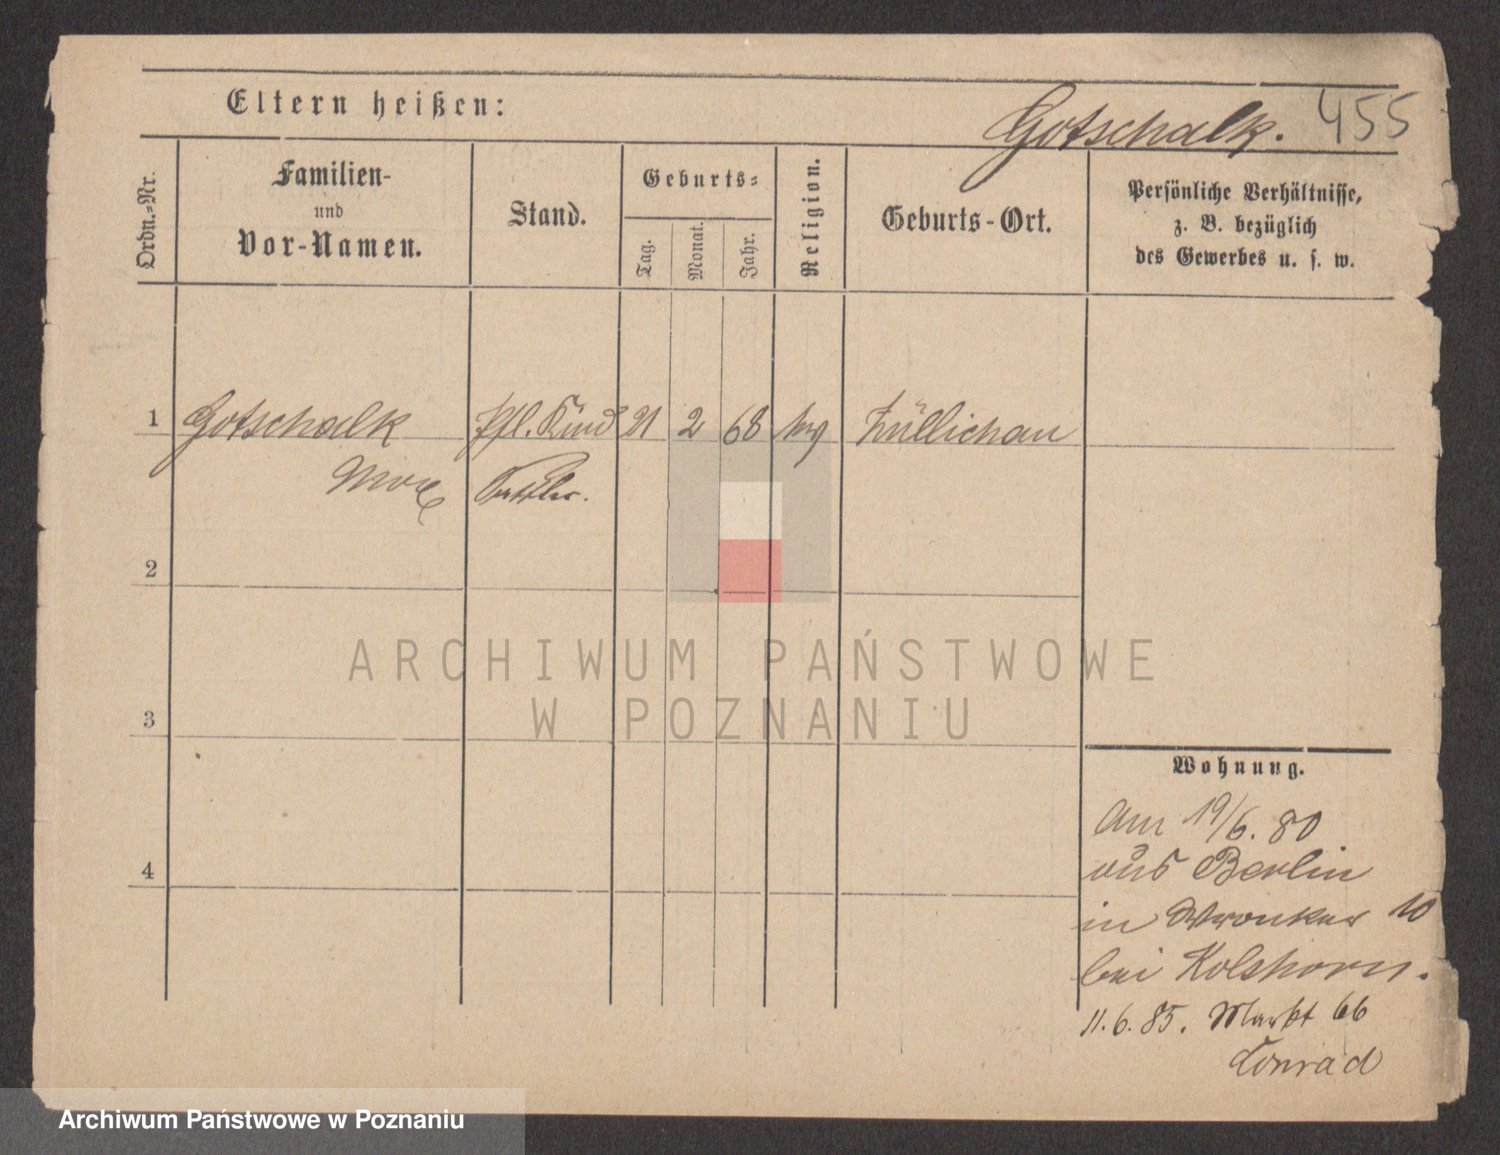 Eltern heißen:
Gotschalk. 455
Ordn.-Nr.
Familien-
und
Vor-Namen.
Stand.
Geburts-
Tag.
Monat.
Jahr.
Religion.
Geburts-Ort.
Persönliche Verhältnisse,
z. B. bezüglich
des Gewerbes u. s. w.
1 Gotschalk Pfl. Kind 21 2 68 Züllichau
Max
2
3
4
ARCHIWUM PAŃSTWOWE
W POZNANIU
Wohnung.
Am 19/6. 80
aus Berlin
in Wronker 10
bei Kolshorn.
11. 6. 85. Markt 66
Conrad
Archiwum Państwowe w Poznaniu